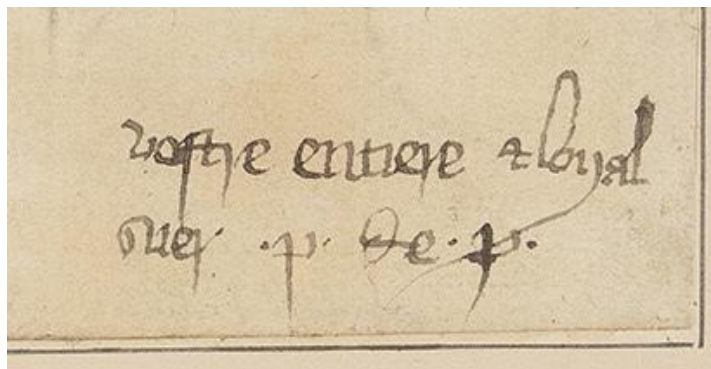 vostre entiere & loyal
suer .p. de .p.